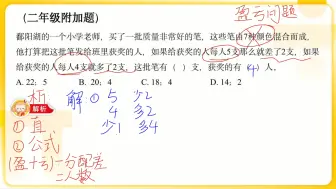 盈亏问题
(二年级附加题)
鄱阳湖的一个小学老师，买了一批质量非常好的笔，这些笔由7种颜色混合而成，
他打算把这批笔发给班里获奖的人，如果给获奖的人每人5支那么就差了2支，如果
给获奖的人每人4支就多了2支，这批笔有（ ）支，获奖的有（4）人。
A. 22；5 B. 20；4 C. 18；4 D. 14；2
析 解 ① 5 少2
解析 4 多2
① 直 少1 多4
② 公式
(盈+亏)÷分配差
=人数